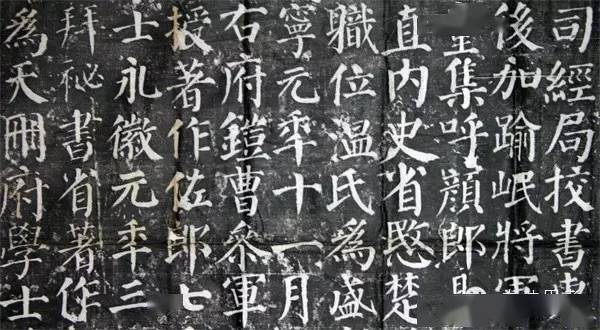 司經局校書
後加踰岷將
集呼顏郎
直内史省愍楚
職位温氏為盛
寧元年十一月
右府鎧曹叅軍
授著作佐郎七
士永徽元年三
拜祕書省著作
為天冊府學士